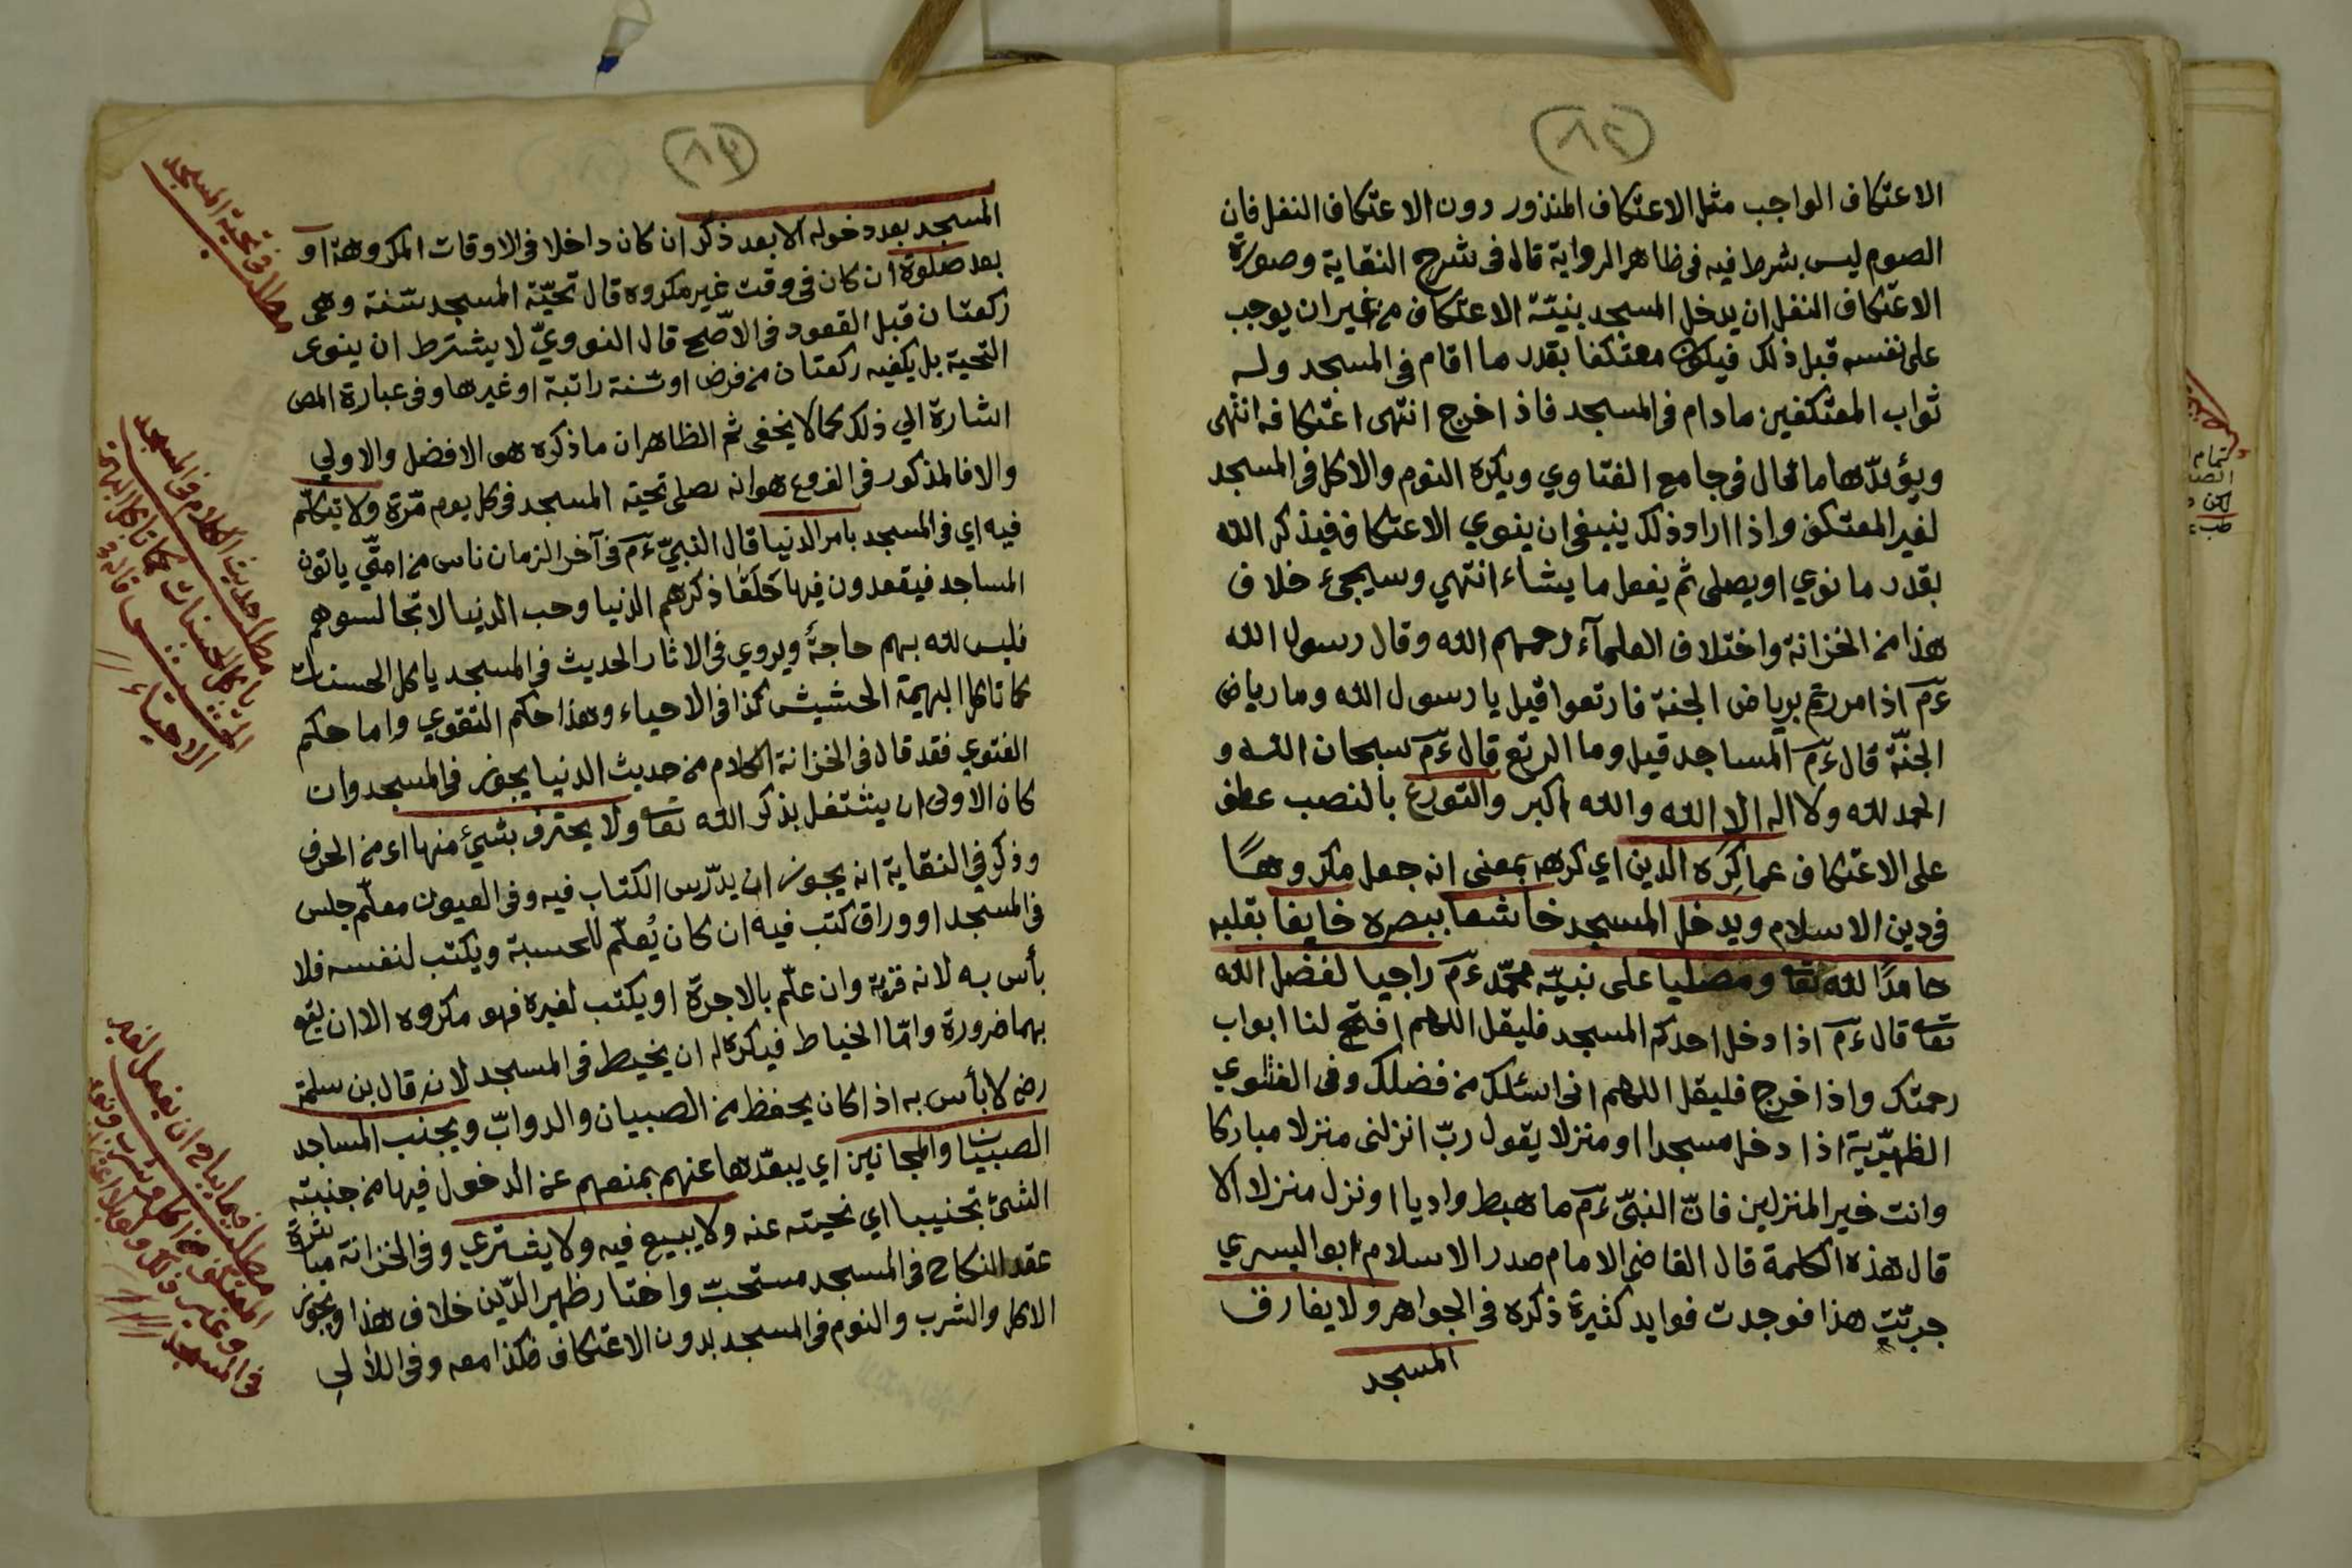 (٨٢)
الاعتكاف الواجب مثل الاعتكاف المنذور دون الاعتكاف النفل فان
الصوم ليس بشرط فيه فى ظاهر الرواية قال فى شرح النقاية وصورة
الاعتكاف النفل ان يدخل المسجد بنيّة الاعتكاف من غير ان يوجب
على نفسه قبل ذلك فيكون معتكفا بقدر ما اقام فى المسجد وله
ثواب المعتكفين مادام فى المسجد فاذا خرج انتهى اعتكافه انتهى
ويؤيدّها ما قال فى جامع الفتاوي ويكره النوم والاكل فى المسجد
لغير المعتكف واذا اراد ذلك ينبغى ان ينوي الاعتكاف فيذكر الله
بقدر ما نوي او يصلى ثم يفعل ما يشاء انتهي وسيجىء خلاف
هذا من الخزانة واختلاف العلمآء رحمهم الله وقال رسول الله
ءم اذا مررتم برياض الجنة فارتعوا قيل يا رسول الله وما رياض
الجنّة قال ءم المساجد قيل وما الرتع قال ءم سبحان الله و
الحمد لله ولا اله الا الله والله اكبر والتورع بالنصب عطف
على الاعتكاف عما كره الدين اي كرهه بمعنى انه جعل مكروهًا
فى دين الاسلام ويدخل المسجد خاشعا ببصره خايفا بقلبه
حامدًا لله تعا ومصليا على نبيّه محمّد ءم راجيا لفضل الله
تعا قال ءم اذا دخل احدكم المسجد فليقل اللهم افتح لنا ابواب
رحمتك واذا خرج فليقل اللهم انى اسئلك من فضلك وفى الفتاوي
الظهيّرية اذا دخل مسجدا او منزلا يقول ربّ انزلنى منزلا مباركا
وانت خير المنزلين فانّ النبىّ ءم ما هبط واديا او نزل منزلا الا
قال هذه الكلمة قال القاضى الامام صدر الاسلام ابو اليسري
جرّبت هذا فوجدت فوايد كثيرة ذكره فى الجواهر ولا يفارق
المسجد
(٨٣)
المسجد بعد دخوله الا بعد ذكر ان كان داخلا فى الاوقات المكروهة او
بعد صلوة ان كان فى وقت غير مكروه قال تحيّة المسجد سنّة وهى
ركعتان قبل القعود فى الاصّح قال النوويّ لا يشترط ان ينوى
التحية بل يكفيه ركعتان من فرض او سنة راتبة او غيرها وفى عبارة المص
اشارة الي ذلك كما لا يخفى ثم الظاهر ان ما ذكره هو الافضل والاولي
والا فالمذكور فى الفروع هو انه يصلى تحية المسجد فى كل يوم مرّة ولا يتكلّم
فيه اي فى المسجد بامر الدنيا قال النبىّ ءم فى آخر الزمان ناس من امتّي ياتون
المساجد فيقعدون فيها حَلَقًا ذكرهم الدنيا وحب الدنيا لا تجالسوهم
فليس لله بهم حاجة ويروي فى الاثار الحديث فى المسجد ياكل الحسنات
كما تاكل البهيمة الحشيش كذا فى الاحياء وهذا حكم التقوي واما حكم
الفتوي فقد قال فى الخزانة الكلام من حديث الدنيا يجوز فى المسجد وان
كان الاولى ان يشتغل بذكر الله تعا ولا يحترف بشيئ منها اى من الحرف
وذكر في النقاية انه يجوز ان يدرّس الكتاب فيه وفى العيون معلّم جلس
فى المسجد او وراق كتب فيه ان كان يُعلّم للحسبة ويكتب لنفسه فلا
بأس به لانه قربة وان علّم بالاجرة او يكتب لغيره فهو مكروه الا ان يقع
بهما ضرورة وامّا الخياط فيكره له ان يخيط فى المسجد لانه قال بن سلمة
رضى لا بأس به اذا كان يحفظ من الصبيان والدوابّ ويجنب المساجد
الصبيان والمجانين اي يبعّدها عنهم بمنعهم عن الدخول فيها من جنبته
الشئ تجنيبا اي نحيته عنه ولا يبيع فيه ولا يشتري وفى الخزانة مباشرة
عقد النكاح فى المسجد مستحبّ واختار ظهير الدّين خلاف هذا ويجوز
الاكل والشرب والنوم فى المسجد بدون الاعتكاف هكذا معه وفى اللألي
مطلب فى تحية المسجد
مطلب حديث الكلام فى المسجد
ياكل الحسنات كما تاكل البهيمة
الحشيش قاله فى
الاحياء
مطلب فيما يباح ان يفعل لغير
المعتكف من اكل وشرب ونوم
وغير ذلك
فى المسجد
تمام
لكن